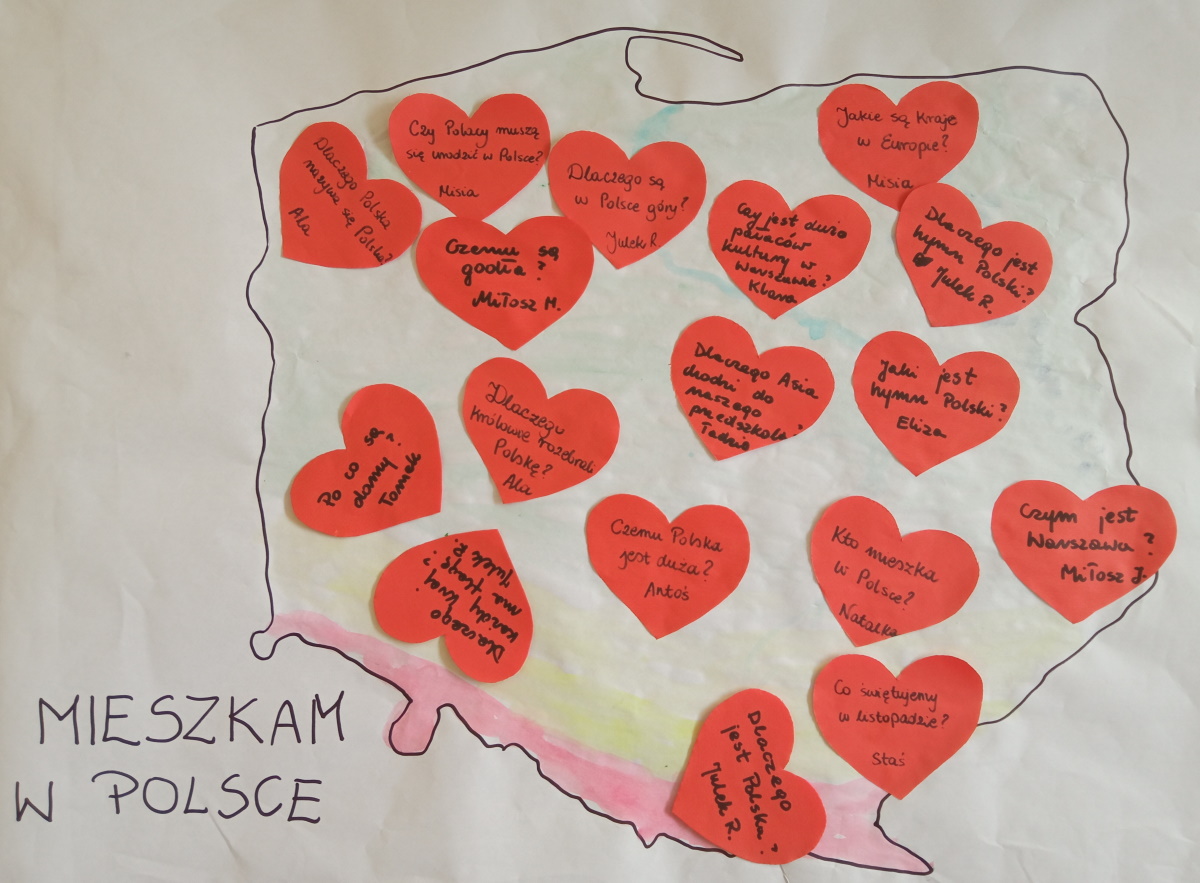 Czy Polacy muszą
się urodzić w Polsce?
Misia
Jakie są Kraje
w Europie?
Misia
Dlaczego Polska
nazywa się Polska?
Ala
Dlaczego są
w Polsce góry?
Julek R.
Czy jest dużo
pałaców
kultury w
Warszawie?
Klara
Dlaczego jest
hymn Polski?
Julek R.
Czemu są
godła?
Miłosz M.
Dlaczego Asia
chodzi do
naszego
przedszkola?
Tadzio
Jaki jest
hymn Polski?
Eliza
Dlaczego
Królowie rozebrali
Polskę?
Ala
Po co są
damy?
Tomek
Czemu Polska
jest duża?
Antoś
Kto mieszka
w Polsce?
Natalka
Czym jest
Warszawa?
Miłosz J.
Dlaczego
każdy kraj
ma flagę?
Julek R.
Co świętujemy
w listopadzie?
Staś
Dlaczego
jest Polska?
Julek R.
MIESZKAM
W POLSCE